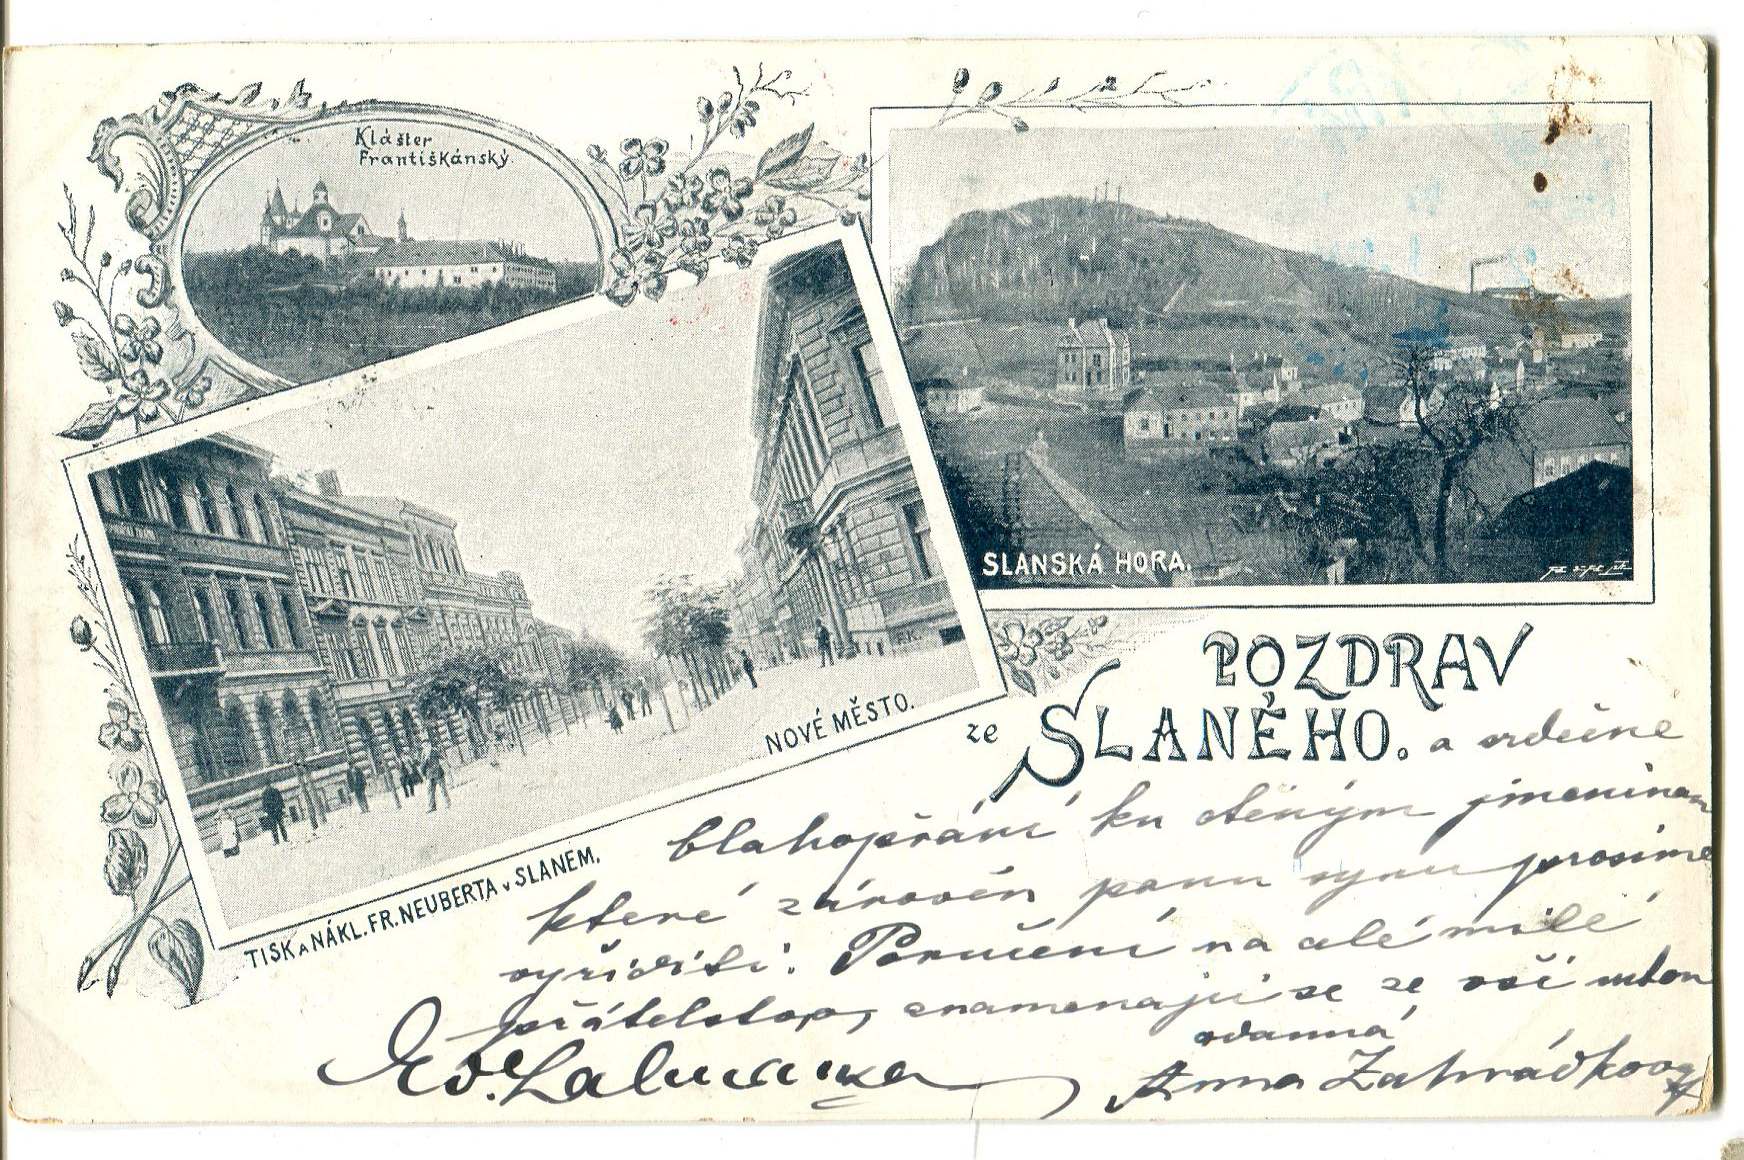 Klášter
Františkánský.
SLANSKÁ HORA.
NOVÉ MĚSTO.
TISK A NÁKL. FR. NEUBERTA V SLANÉM.
POZDRAV
ze SLANÉHO. a srdečné
blahopřání ku ctěným jmeninam
které zároveň panu synu prosíme
vyříditi. Poručení na celé milé
přátelstvo, znamenají se ze vší
oddanná
Anna Zahrádkova